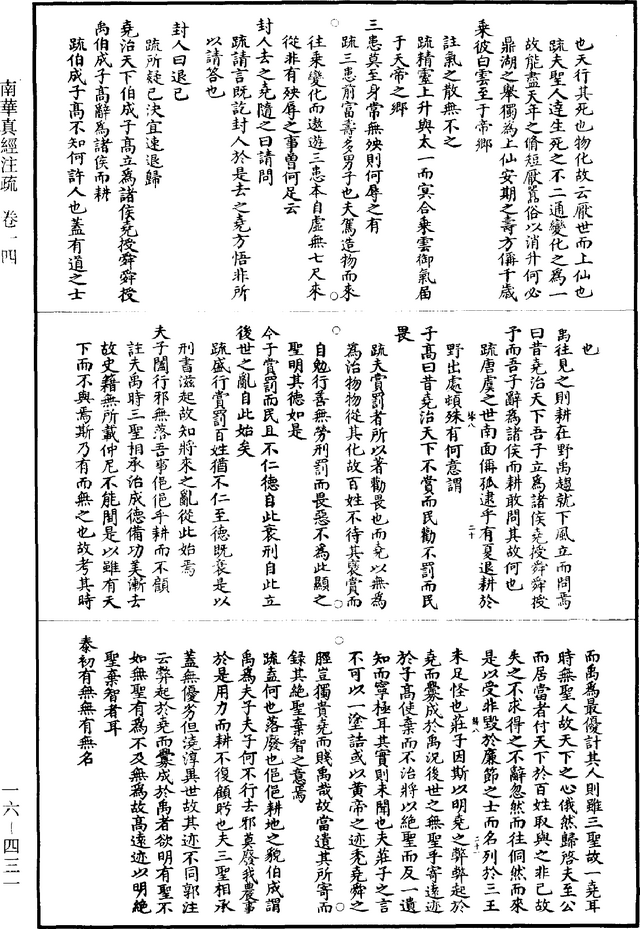 也天行其死也物化故云厭世而上仙也
疏夫聖人達生死之不二通變化之為一
故能盡天年之脩短厭囂俗以消升何必
鼎湖之舉獨為上仙安期之壽方偁千歲
乘彼白雲至于帝鄉
註氣之散無不之
疏精靈上升與太一而冥合乘雲御氣屆
于天帝之鄉
三患莫至身常無殃則何辱之有
疏三患前富壽多男子也夫駕造物而來
往乘變化而遨遊三患本自虛無七尺來
從非有殃辱之事曾何足云
封人去之堯隨之曰請問
疏請言既訖封人於是去之堯方悟非所
以請荅也
封人曰退已
疏所疑已決宜速退歸
堯治天下伯成子高立為諸侯堯授舜舜授
禹伯成子高辭為諸侯而耕
疏伯成子高不知何許人也蓋有道之士
南華真經注疏 卷一四
也
禹往見之則耕在野禹趨就下風立而問焉
曰昔堯治天下吾子立為諸侯堯授舜舜授
予而吾子辭為諸侯而耕敢問其故何也
疏唐虞之世南面偁孤逮乎有夏退耕於
野出處頓殊有何意謂
子高曰昔堯治天下不賞而民勸不罰而民
畏
疏夫賞罰者所以著勸畏也而堯以無為
為治物物從其化故百姓不待其褒賞而
自勉行善無勞刑罰而畏惡不為此顯之
聖明其德如是
今子賞罰而民且不仁德自此衰刑自此立
後世之亂自此始矣
疏盛行賞罰百姓猶不仁至德既衰是以
刑書滋起故知將來之亂從此始焉
夫子闔行邪無落吾事俋俋乎耕而不顧
註夫禹時三聖相承治成德備功美漸去
故史籍無所載仲尼不能閒是以雖有天
下而不與焉斯乃有而無之也故考其時
而禹為最優計其人則雖三聖故一堯耳
時無聖人故天下之心俄然歸啓夫至公
而居當者付天下於百姓取與之非已故
失之不求得之不辭忽然而往侗然而來
是以受非毀於廉節之士而名列於三王
未足怪也莊子因斯以明堯之弊弊起於
堯而釁成於禹況後世之無聖乎寄遠迹
於子高使棄而不治將以絶聖而反一遺
知而寧極耳其實則未聞也夫莊子之言
不可以一塗詰或以黃帝之迹禿堯舜之
脛豈獨貴堯而賤禹哉故當遺其所寄而
録其絶聖棄智之意焉
疏盍何也落廢也俋俋耕地之貌伯成謂
禹為夫子夫子何不行去邪莫廢我農事
於是用力而耕不復顧盻也夫三聖相承
蓋無優劣但澆淳異世故其迹不同郭注
云弊起於堯而釁成於禹者欲明有聖不
如無聖有為不及無為故高遠迹以明絶
聖棄智者耳
泰初有無無有無名
一六—四三一